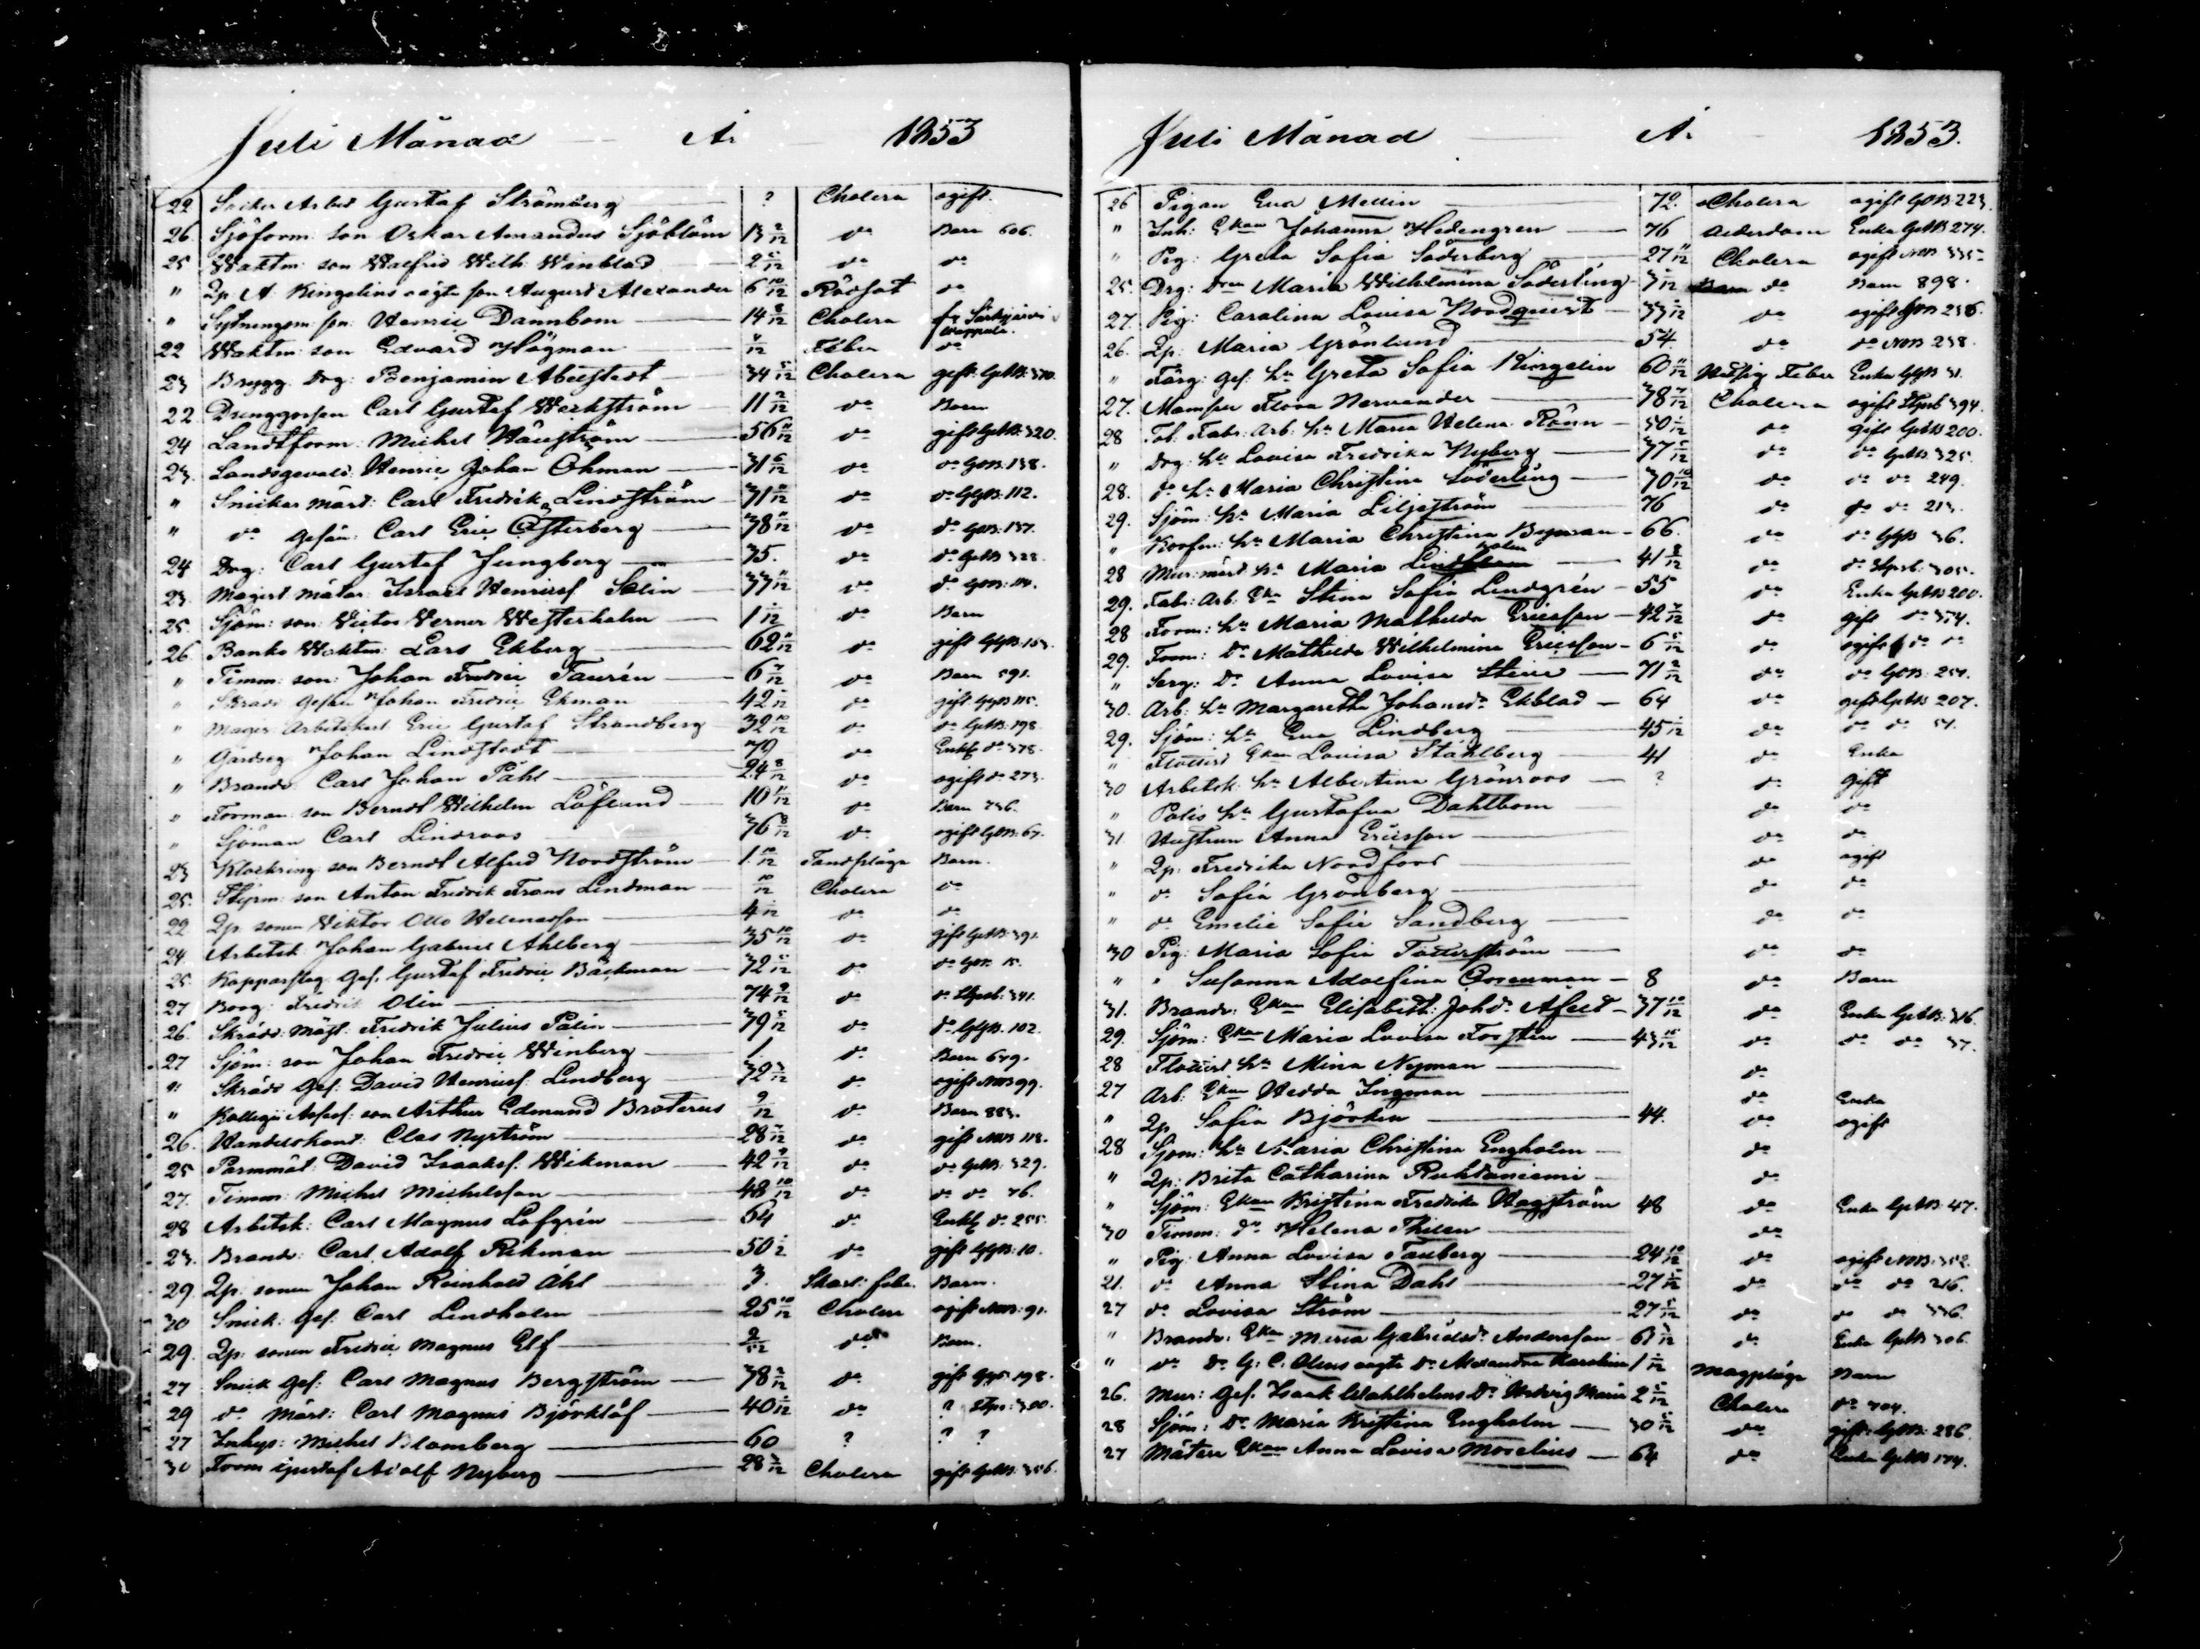 Juli Månad — År — 1853
22 Socker Arbet Gustaf Strömberg — ? Cholera ogift.
26. Sjöform: son Oskar Amandus Sjöblom 13 2/12 do Barn 606.
25 Waktm: son Walfrid Wilh: Winblad 2 5/12 do do
" Qp A. Ringelins oägta son August Alexander 6 10/12 Rödsot do
" son: Henric Dannbom — 14 8/12 Cholera
22 Waktm: son Edvard Högman — /12 Feber do
23 Brygg. Drg: Benjamin Abelstedt — 34 5/12 Cholera gift
22 Carl Gustaf Werkström — 11 2/12 do Barn
24 Landtform: Michel — 56 /12 do gift 320.
23. Henric Johan Öhman — 31 6/12 do do 138.
" Snickar mäst: Carl Fredrik Lindström — 71 /12 do do 112.
" do Gesän: Carl Eric Österberg — 38 /12 do do 137.
24 Drg: Carl Gustaf Jungberg — 35. do do
23. Israel Henricsf Selin — 37 /12 do do 114.
25. Sjöm: son: Victor Verner Westerholm — 1 /12 do Barn
26 Banko Waktm: Lars Ekberg — 62 /12 do gift
" Timm: son: Johan Fredric Taurén — 6 7/12 do Barn 591.
" Johan Fredric Ekman — 42 /12 do gift 115.
" Eric Gustaf Strandberg 39 10/12 do do 198
" Gårdsdrg Johan Lindstedt — 70 do Enkl do 378.
" Brandv: Carl Johan Påhl — 24 8/12 do ogift do 273.
" Forman: son Berndt Wilhelm Löflund — 10 11/12 do Barn 736.
" Sjöman Carl Lindroos — 36 8/12 do ogift 67.
23 Klockring: son Berndt Alfred Nordström — 1 10/12 Tandplåga Barn.
25. Styrm: son Anton Fredrik Frans Lindman — 10/12 Cholera do
22 Qp sonen Viktor Otto Helenasson — 4 /12 do do
24 Arbetsk Johan Gabriel Ahlberg — 35 10/12 do gift 391.
25 Kopparslag: Ges: Gustaf Fredric Bäckman — 32 5/12 do do 15.
27 Borg: Fredrik Olin — 74 9/12 do do 341.
26. Skrädd: Mäst: Fredrik Julius Palin — 39 5/12 do do 102.
27 Sjöm: son Johan Fredric Winberg — 1 do Barn 649.
" Skrädd Ges: David Henricsf: Lindberg — 32 3/12 do ogift 99.
" Kollegii Assess: son Arthur Edmund Broterus 9/12 do Barn 883.
26. Clas Nyström — 28 7/12 do gift 118.
25 David Isaaksf: Wikman — 42 9/12 do do 329.
27. Timm: Michel Michelsson — 48 10/12 do do do 76.
28 Arbetsk: Carl Magnus Löfgrén — 64 do Enkl do 255.
23. Brandv: Carl Adolf Rikman — 50 do gift 10.
29. Qp: sonen Johan Reinhold Åhl — 3. Skarl: feber Barn.
30 Snick: Ges: Carl Lindholm — 25 10/12 Cholera ogift 91.
29. Qp: sonen Fredric Magnus Elf — 2/12 do Barn.
27 Snick Ges: Carl Magnus Bergström — 38 2/12 do gift 198.
29 do Mäst: Carl Magnus Björklöf — 40 /12 do ? 300.
27 Inhys: Michel Blomberg — 60 ? ? ?
30 Form Gustaf Adolf Nyberg — 28 /12 Cholera gift 356.
Juli Månad — År — 1853.
26 Pigan Eva Mellin — 72. Cholera ogift 223.
" Inh: Ekan Johanna Hedengren — 76 Ålderdom Enka 274.
" Pig: Greta Sofia Söderberg — 27 11/12 Cholera ogift 335
25. Drg: Maria Wilhelmina Söderling 3 /12 do Barn 898.
27. Pig: Carolina Lovisa Nordquist — 33 /12 do ogift 256.
26. Qp: Maria Grönlund — 54. do do 238.
" Färg: Ges: hu Greta Sofia Ringelin 60 11/12 Feber Enka 31.
27. Mamsell Flora Nervander — 38 7/12 Cholera ogift 394.
28 Tob. Fabr: Arb: hu Maria Helena Rönn — 50 1/12 do gift 200.
" Drg: hu Lovisa Fredrika Nyberg — 37 5/12 do do 325.
28. do hu Maria Christina Söderling — 30 10/12 do do do 249.
29. Sjöm: hu Maria Liljeström — 76 do do do 213.
" hu Maria Christina Boman — 66. do do 36.
28 Mur: mäst hu Maria — 41 8/12 do do 305.
29. Fabr: Arb: Eka Stina Sofia Lindgrén — 55 do Enka 200.
28 Form: hu Maria Mathilda Ericsson — 42 7/12 do gift do 374.
29. Form: Dr Mathilda Wilhelmina Ericsson — 6 5/12 do ogift do do
" Serg: Dr Anna Lovisa Stüve — 71 2/12 do do 254.
30. Arb: hu Margaretha Johansdr Ekblad — 64 do gift 207.
29. Sjöm: hu Eva Lindberg — 45 /12 do do do 51.
" Ekan Lovisa Ståhlberg — 41 do Enka
30 Arbetsk hu Albertina Grönroos — ? do gift
" Polis hu Gustafva Dahlbom do do
31. Hustrun Anna Ericsson — do do
" Qp: Fredrika Nordfors — do ogift
" do Sofia Grönberg — do do
" do Emelie Sofia Sandberg — do do
30 Pig: Maria Sofia — do do
" " Susanna Adolfina — 8 do Barn
31. Brandv: Ekan Elisabeth Johdr — 37 10/12 do Enka 316.
29. Sjöm: Ekan Maria Lovisa Forstén — 43 /12 do do do 37.
28 hu Mina Nyman — do
27 Arb: Ekan Hedda Ingman — do Enka
" Qp Sofia Björkm — 44. do ogift
28 Sjöm: hu Maria Christina Engholm — do
" Qp: Brita Catharina Ruhtaniemi — do
" Sjöm: Ekan Kristina Fredrika Hagström 48 do Enka 47.
30 Timm: do Helena Thilen — do
" Pig: Anna Lovisa Taxberg — 24 10/12 do ogift 352.
21. do Anna Stina Dahl — 27 /12 do do do 216.
27 do Lovisa Ström — 27 5/12 do do do 336.
" Brandv: Ekan Maria Gabrielsdr Andersson — 61 /12 do Enka 306.
" do Dr G: C. Olins oägta dr Alexandra Karolina 1 /12 Magplåga Barn
26. Mur: Ges. Isaak Wahlholms Dr Hedvig Maria 2 5/12 Cholera do 704.
28 Sjöm: Dr Maria Kristina Engholm — 30 5/12 do gift 286.
27 Mätere Ekan Anna Lovisa Moselius — 64 do Enka 174.